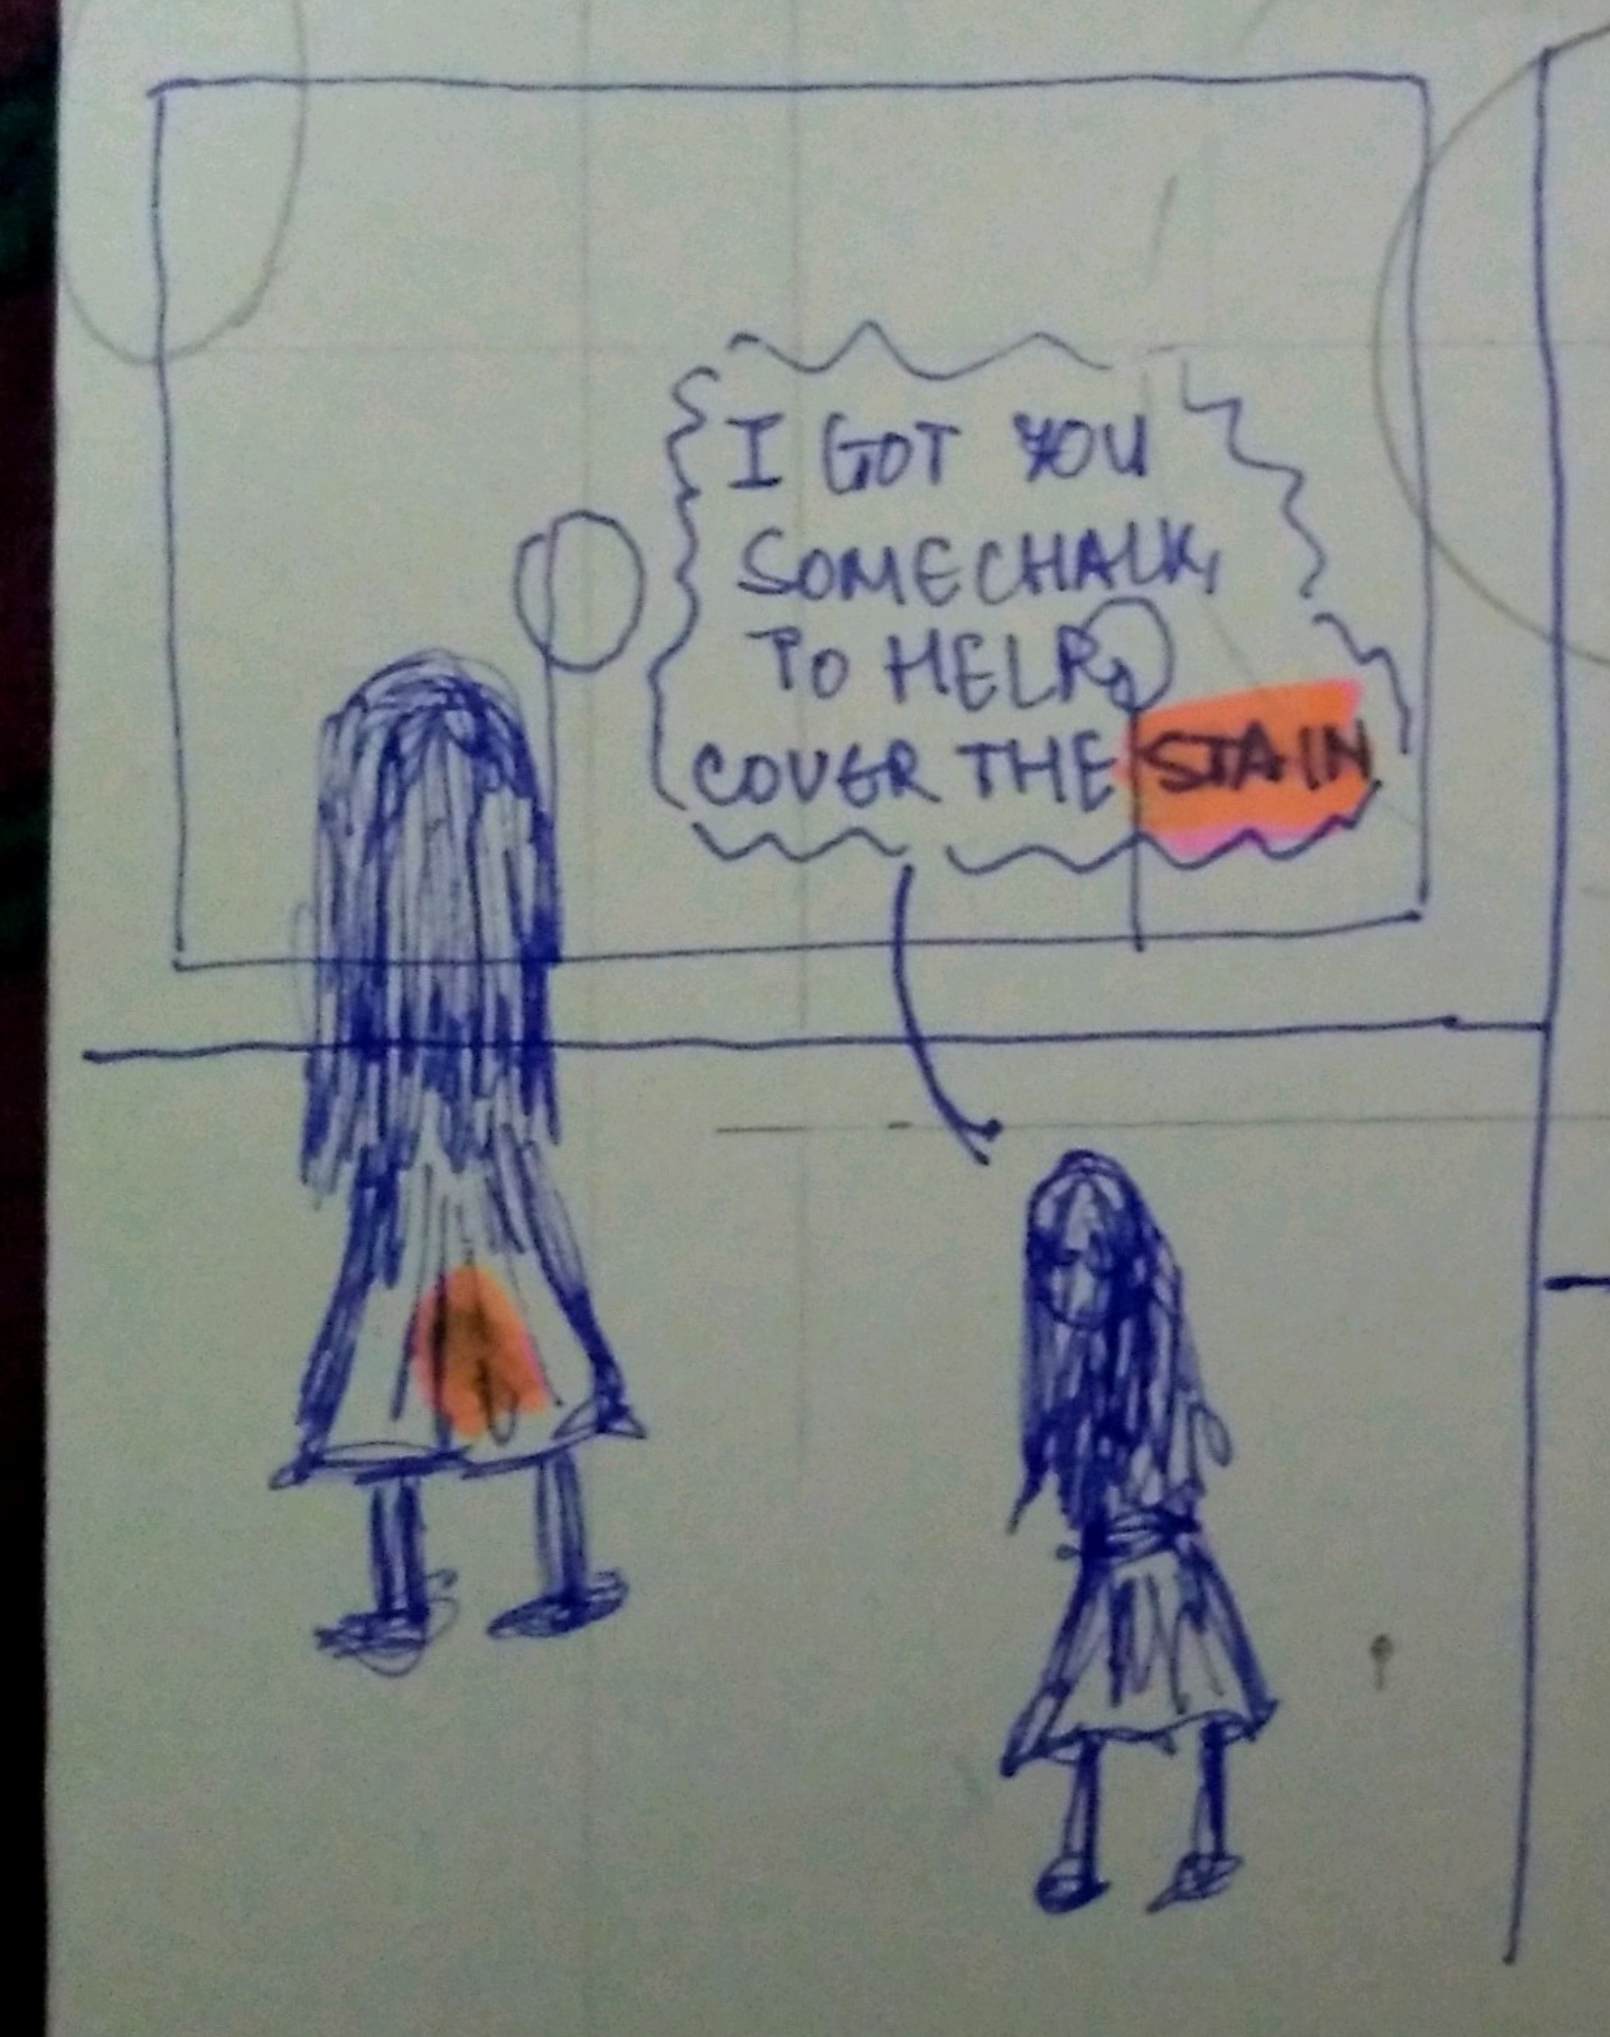 I GOT YOU
SOME CHALK,
TO HELP,
COVER THE STAIN